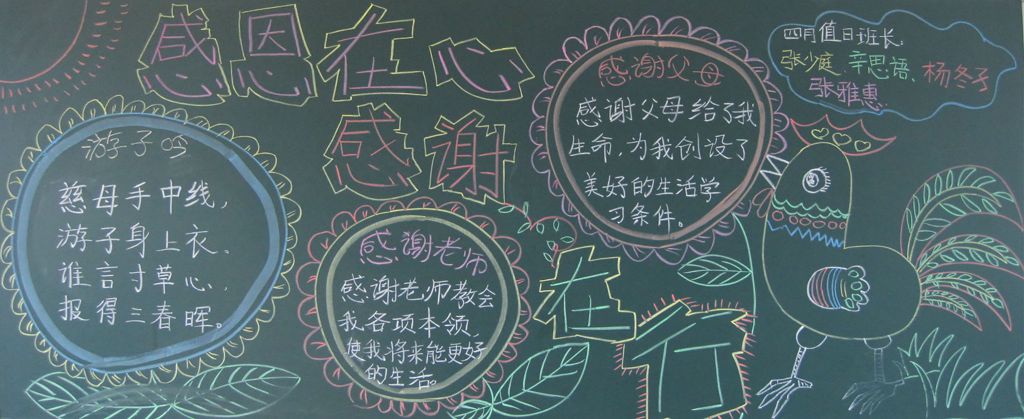 感恩在心
感谢
在行
游子吟
慈母手中线，
游子身上衣、
谁言寸草心，
报得三春晖。
感谢老师
感谢老师教会
我各项本领
使我将来能更好
的生活。
感谢父母
感谢父母给了我
生命，为我创设了
美好的生活学
习条件。
四月值日班长、
张少庭、辛思语、杨冬予
张雅惠